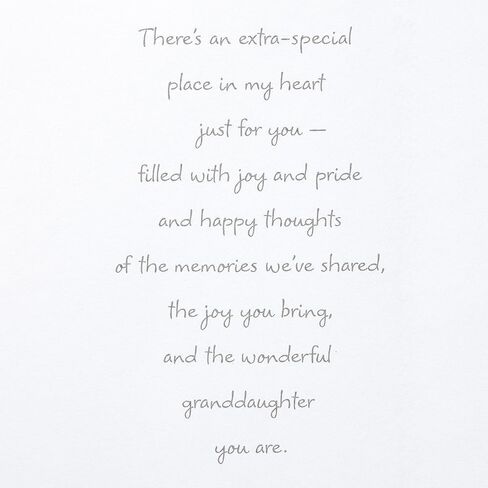 There's an extra-special
place in my heart
just for you —
filled with joy and pride
and happy thoughts
of the memories we've shared,
the joy you bring,
and the wonderful
granddaughter
you are.